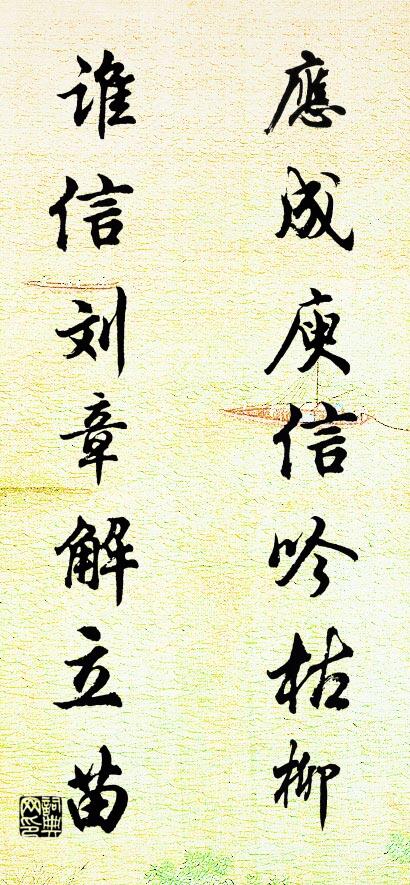 應成庾信吟枯柳
誰信刘章解立苗
詞典网印